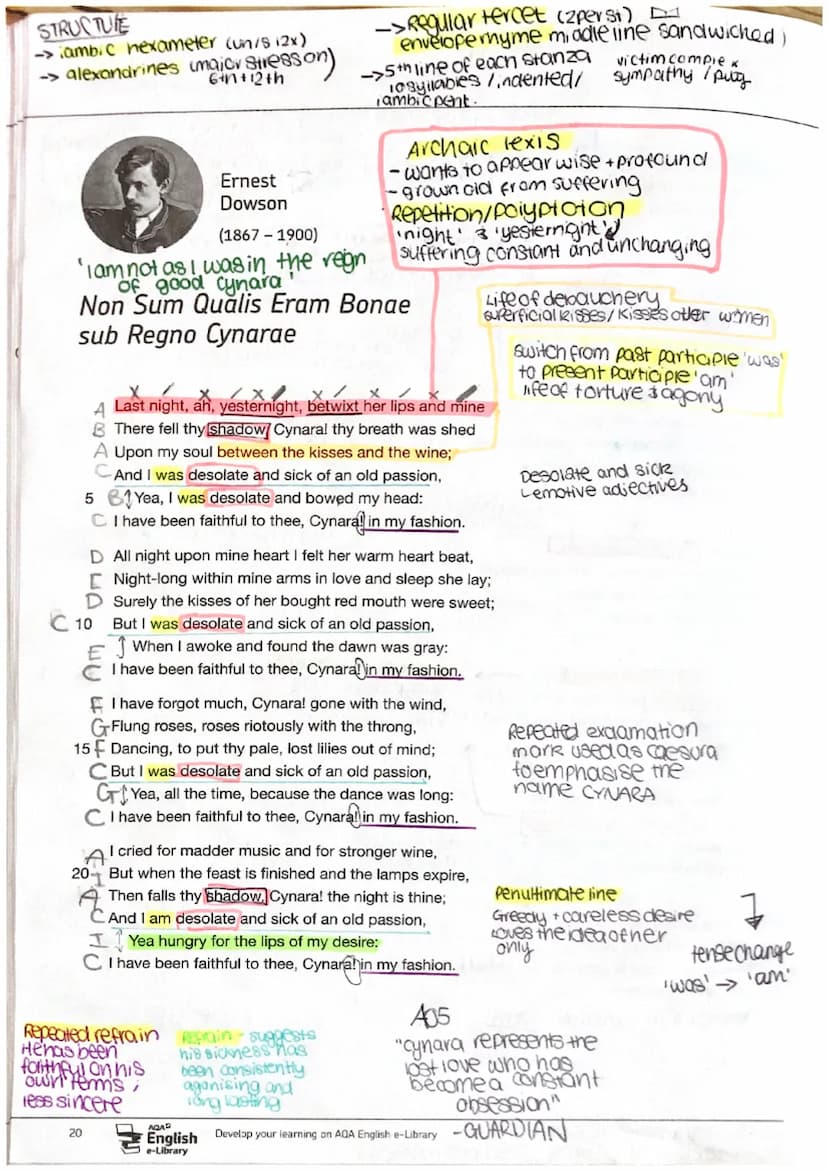 STRUCTUTE
-> iambic hexameter (un/s 12x)
-> alexandrines (major stress on
6th + 12th)
-> Regular tercet (2 per st)
envelope rhyme middle line sandwiched)
-> 5th line of each stanza
10 syllables / indented /
iambic pent.
victim complex
sympathy / pity
Ernest
Dowson
(1867 – 1900)
Archaic lexis
- wants to appear wise + profound
- grown old from suffering
Repetition/polyptoton
'night' & 'yesternight'
suffering constant and unchanging
'I am not as I was in the reign
of good cynara'
Non Sum Qualis Eram Bonae
sub Regno Cynarae
Life of debauchery
superficial kisses / kisses other women
switch from past participle 'was'
to present participle 'am'
life of torture & agony
A Last night, ah, yesternight, betwixt her lips and mine
B There fell thy shadow, Cynara! thy breath was shed
A Upon my soul between the kisses and the wine;
C And I was desolate and sick of an old passion,
5 B Yea, I was desolate and bowed my head:
C I have been faithful to thee, Cynara! in my fashion.
Desolate and sick
emotive adjectives
D All night upon mine heart I felt her warm heart beat,
E Night-long within mine arms in love and sleep she lay;
D Surely the kisses of her bought red mouth were sweet;
C 10 But I was desolate and sick of an old passion,
E When I awoke and found the dawn was gray:
C I have been faithful to thee, Cynara! in my fashion.
F I have forgot much, Cynara! gone with the wind,
G Flung roses, roses riotously with the throng,
15 F Dancing, to put thy pale, lost lilies out of mind;
C But I was desolate and sick of an old passion,
G Yea, all the time, because the dance was long:
C I have been faithful to thee, Cynara! in my fashion.
Repeated exclamation
mark used as caesura
to emphasise the
name CYNARA
A I cried for madder music and for stronger wine,
20 I But when the feast is finished and the lamps expire,
A Then falls thy shadow, Cynara! the night is thine;
C And I am desolate and sick of an old passion,
I Yea hungry for the lips of my desire:
C I have been faithful to thee, Cynara! in my fashion.
Penultimate line
Greedy + careless desire
Loves the idea of her
only
tense change
'was' -> 'am'
Repeated refrain
He has been
faithful on his
own terms,
less sincere
Refrain - suggests
his sickness has
been consistently
agonising and
long lasting
AO5
"cynara represents the
lost love who has
become a constant
obsession"
-GUARDIAN
20
AQA
English
e-Library
Develop your learning on AQA English e-Library